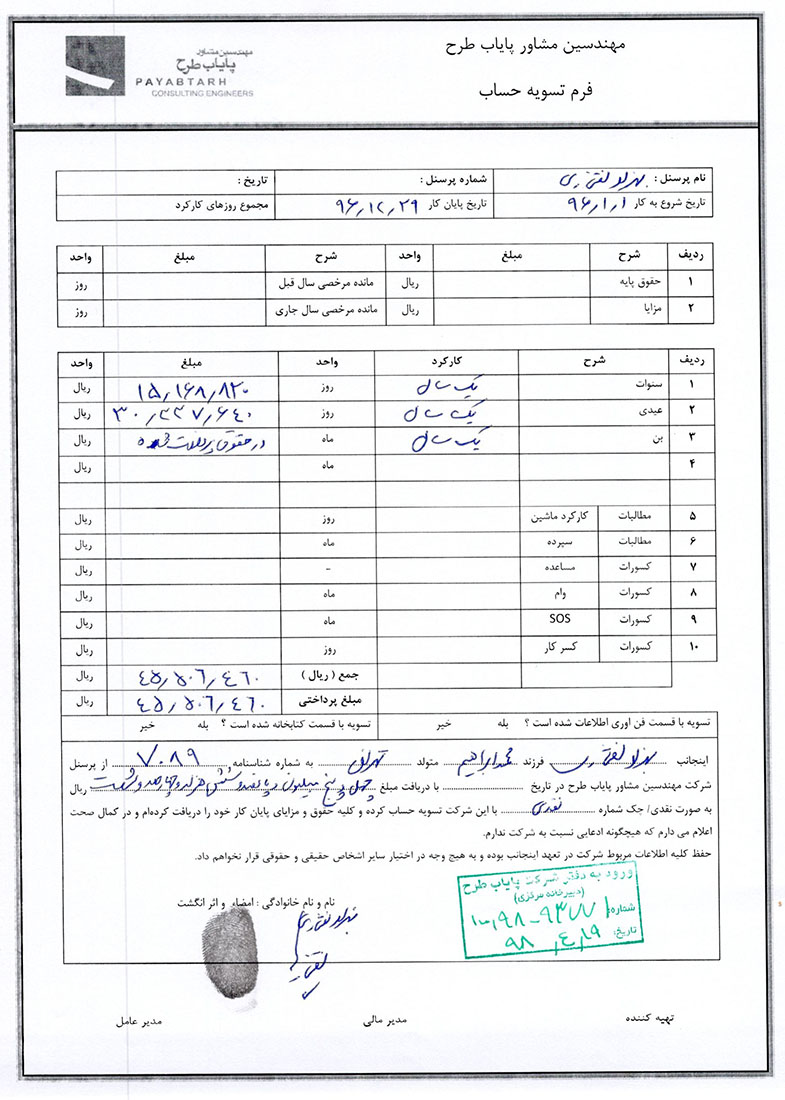 مهندسین مشاور پایاب طرح
فرم تسویه حساب
مهندسین مشاور
پایاب طرح
PAYABTARH
CONSULTING ENGINEERS
نام پرسنل : شماره پرسنل : تاریخ :
تاریخ شروع به کار ۹۶/۱/۱ تاریخ پایان کار ۹۶/۱۲/۲۹ مجموع روزهای کارکرد
ردیف شرح مبلغ واحد شرح مبلغ واحد
۱ حقوق پایه ریال مانده مرخصی سال قبل روز
۲ مزایا ریال مانده مرخصی سال جاری روز
ردیف شرح کارکرد واحد مبلغ واحد
۱ سنوات یک سال روز ۱۵/۱۶۸/۸۲۰ ریال
۲ عیدی یک سال روز ۳۰/۳۳۷/۶۴۰ ریال
۳ بن یک سال ماه در حقوق پرداخت شده ریال
۴ ماه ریال
۵ مطالبات کارکرد ماشین روز ریال
۶ مطالبات سپرده ماه ریال
۷ کسورات مساعده - ریال
۸ کسورات وام ماه ریال
۹ کسورات SOS ماه ریال
۱۰ کسورات کسر کار روز ریال
جمع ( ریال ) ۴۵/۵۰۶/۴۶۰ ریال
مبلغ پرداختی ۴۵/۵۰۶/۴۶۰ ریال
تسویه با قسمت فن اوری اطلاعات شده است ؟ بله خیر تسویه با قسمت کتابخانه شده است ؟ بله خیر
اینجانب فرزند محمدابراهیم متولد تهران به شماره شناسنامه ۷۰۸۹ از پرسنل
شرکت مهندسین مشاور پایاب طرح در تاریخ با دریافت مبلغ چهل و پنج میلیون و پانصد و شش هزار و چهارصد و شصت ریال
به صورت نقدی/ چک شماره نقدی با این شرکت تسویه حساب کرده و کلیه حقوق و مزایای پایان کار خود را دریافت کرده‌ام و در کمال صحت
اعلام می دارم که هیچگونه ادعایی نسبت به شرکت ندارم.
حفظ کلیه اطلاعات مربوط شرکت در تعهد اینجانب بوده و به هیچ وجه در اختیار سایر اشخاص حقیقی و حقوقی قرار نخواهم داد.
نام و نام خانوادگی : امضاء و اثر انگشت
ورود به دفتر شرکت پایاب طرح
(دبیرخانه مرکزی)
شماره: ۱۰۰,۹۸-۹۳۷۷
تاریخ: ۹۸/۴/۱۹
تهیه کننده مدیر مالی مدیر عامل